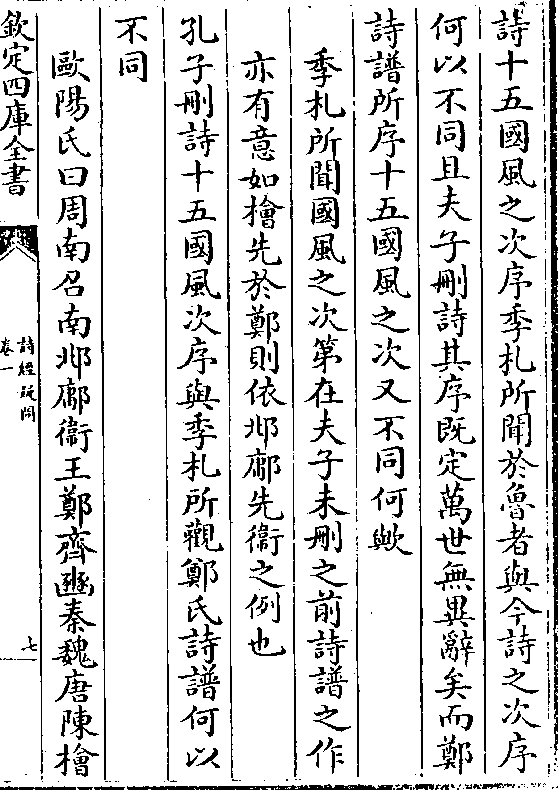 詩十五國風之次序季札所聞於魯者與今詩之次序
何以不同且夫子刪詩其序既定萬世無異辭矣而鄭
詩譜所序十五國風之次又不同何歟
季札所聞國風之次第在夫子未刪之前詩譜之作
亦有意如檜先於鄭則依邶鄘先衞之例也
孔子刪詩十五國風次序與季札所觀鄭氏詩譜何以
不同
歐陽氏曰周南召南邶鄘衞王鄭齊豳秦魏唐陳檜
欽定四庫全書
詩經疑問
卷一
七